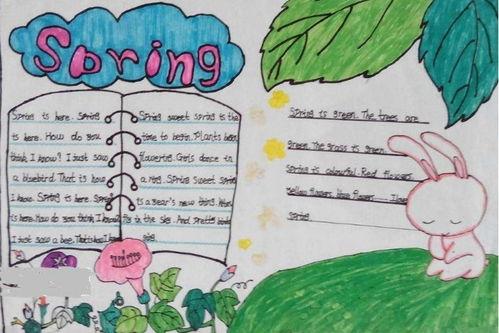 Spring
Spring is here. Spring
is here. How do you
think I know? I just saw
a bluebird. That is how
I know. Spring is here. Spring
is here. How do you think I know?
I just saw a bee. That is how I
Spring sweet spring is the
time to begin. Plants
flowering. Girls dance in
a ring. Spring sweet spring
is a year's new thing.
in the sky. And pretty birds
sing.
Spring is green. The trees are
green. The grass is green.
Spring is colourful. Red flowers
Yellow flowers, blue flowers I love
Spring.